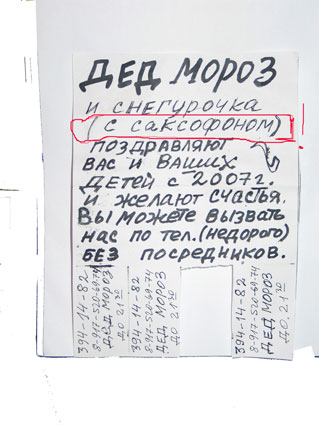 ДЕД МОРОЗ
и СНЕГУРОЧКА
(с саксофоном)
поздравляют
ВАС и ВАШИХ
Детей с 2007г.
и желают счастья.
Вы можете вызвать
нас по тел.(недорого)
БЕЗ посредников.
394-14-82
8-917-520-69-74
ДЕД МОРОЗ
ДО 21 30
394-14-82
8-917-520-69-74
ДЕД МОРОЗ
ДО 21 30
394-14-82
8-917-520-69-74
ДЕД МОРОЗ
ДО 21 30